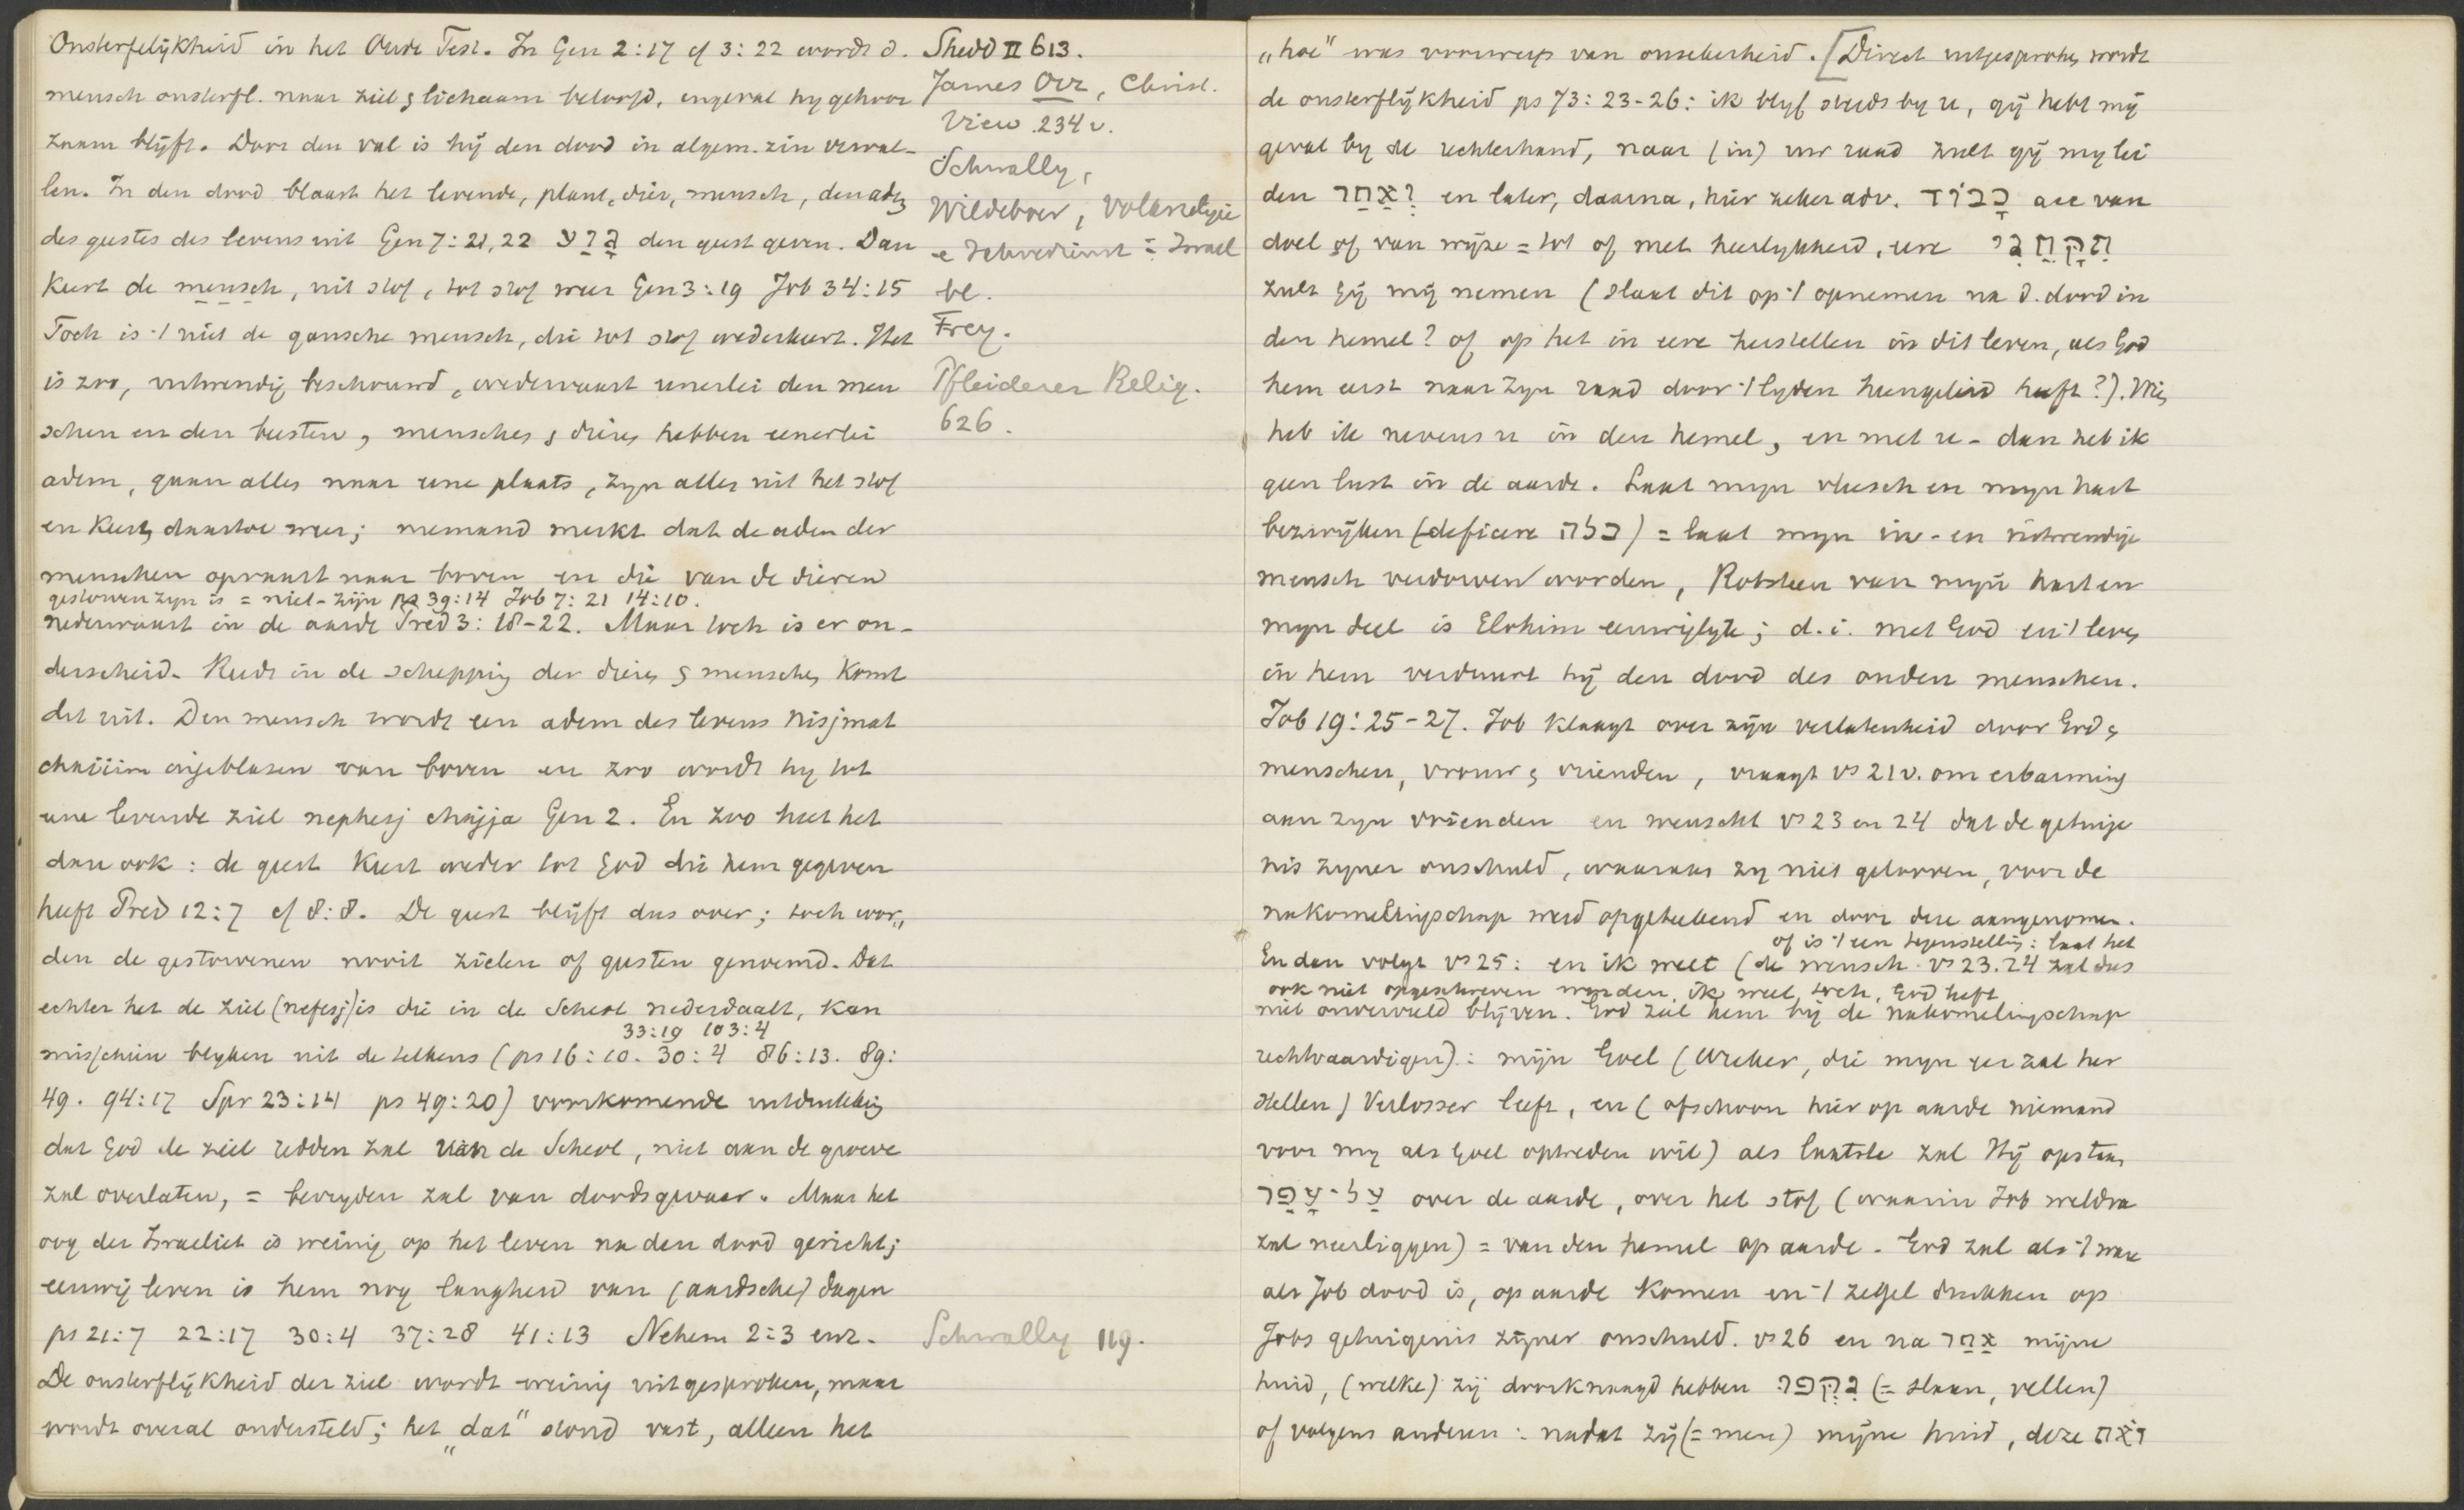 Onsterfelijkheid in het Oude Test. In Gen 2:17 cf 3:22 wordt d.
mensch onsterfl. naar ziel & lichaam beloofd, ingeval hy gehoor
zaam blijft. Door den val is hij den dood in algem. zin verval-
len. In den dood blaast het levende, plant, dier, mensch, den adem
des geestes des levens uit Gen 7:21,22 גָּוַע den geest geven. Dan
Keert de mensch, uit stof, tot stof weer Gen 3:19 Job 34:15
Toch is 't niet de gansche mensch, die tot stof wederkeert. Het
is zoo, uitwendig beschouwd, wedervaart eenerlei den men
schen en den beesten, menschen & dieren hebben eenerlei
adem, gaan alles naar eene plaats, zyn alles uit het stof
en Keeren daartoe weer; niemand merkt dat de adem der
menschen opvaart naar boven en die van de dieren
gestorven zyn is = niet-zijn ps 39:14 Job 7:21 14:10.
nederwaart in de aarde Pred 3:18-22. Maar toch is er on-
derscheid. Reeds in de schepping der dieren & menschen Komt
dit uit. Den mensch wordt een adem des levens nisjmat
chajiim ingeblasen van boven en zoo wordt hy tot
eene levende ziel nephesj chajja Gen 2. En zoo heet het
dan ook: de geest Keert weder tot God die hem gegeven
heeft Pred 12:7 cf 8:8. De geest blijft dus over; toch wor„
den de gestorvenen nooit zielen of geesten genoemd. Dat
echter het de ziel (nefesj) is die in de Scheol nederdaalt, kan
33:19 103:4
misschien blyken uit de telkens (ps 16:10. 30:4 86:13. 89:
49. 94:17 Spr 23:14 ps 49:20) voorkomende uitdrukking
dat God de ziel redden zal van de Scheol, niet aan de groeve
zal overlaten, = bevryden zal van doodsgevaar. Maar het
oog der Israeliet is weinig op het leven na den dood gericht;
eeuwig leven is hem nog langheid van (aardsche) dagen
ps 21:7 22:17 30:4 37:28 41:13 Nehem 2:3 enz.
De onsterflijkheid der ziel wordt weinig uitgesproken, maar
wordt overal ondersteld; het „dat" stond vast, alleen het
Shedd II 613.
James Orr, Christ.
View 234 v.
Schwally,
Wildeboer,
Israel
Frey.
Pfleiderer Relig.
626.
Schwally 119.
„hoe" was voorwerp van onzekerheid. [Direct uitgesproken wordt
de onsterflijkheid ps 73:23-26: ik blijf steeds by u, gij hebt mij
gevat by de rechterhand, naar (in) uw raad zult gij my lei
den וְאַחַר en later, daarna, hier zeker adv. כָּבוֹד acc van
doel of van wijze = tot of met heerlykheid, eere תִּקָּחֵנִי
zult gij mij nemen (slaat dit op 't opnemen na d. dood in
den hemel? of op het in eere herstellen in dit leven, als God
hem eerst naar zyn raad door 't lyden heengeleid heeft?). Wien
heb ik nevens u in den hemel, en met u - dan heb ik
geen lust in de aarde. Laat myn vleesch en myn hart
bezwijken (deficere כלה) = laat myn in- en uitwendige
mensch verdorven worden, Rotssteen van myn hart en
myn deel is Elohim eeuwiglyk; d.i. met God en 't leven
in hem verduurt hij den dood des ouden menschen.
Job 19:25-27. Job klaagt over zijn verlatenheid door God &
menschen, vrouw & vrienden, vraagt vs 21v. om erbarming
aan zyn vrienden en wenscht vs 23 en 24 dat de getuige
nis zyner onschuld, waaraan zy niet gelooven, voor de
nakomelingschap werd opgeteekend en door deze aangenomen.
of is 't een tegenstelling: laat het
En dan volgt vs 25: en ik weet (de wensch vs 23.24 zal dus
ook niet opgeschreven worden, ik weet toch, God heeft
niet onvervuld blijven. God zal hem bij de nakomelingschap
rechtvaardigen): mijn Goel (Wreker, die myn eer zal her
stellen) Verlosser leeft, en (ofschoon hier op aarde niemand
voor my als Goel optreden wil) als laatste zal Hij opstaan
עַל-עָפָר over de aarde, over het stof (waarin Job weldra
zal neerliggen) = van den hemel op aarde. God zal als 't ware
als Job dood is, op aarde komen en 't zegel drukken op
Jobs getuigenis zijner onschuld. vs 26 en na אַחַר mijne
huid, (welke) zij doorknaagd hebben נִקְּפוּ (= slaan, vellen)
of volgens anderen: nadat zij (= men) mijne huid, deze זֹאת